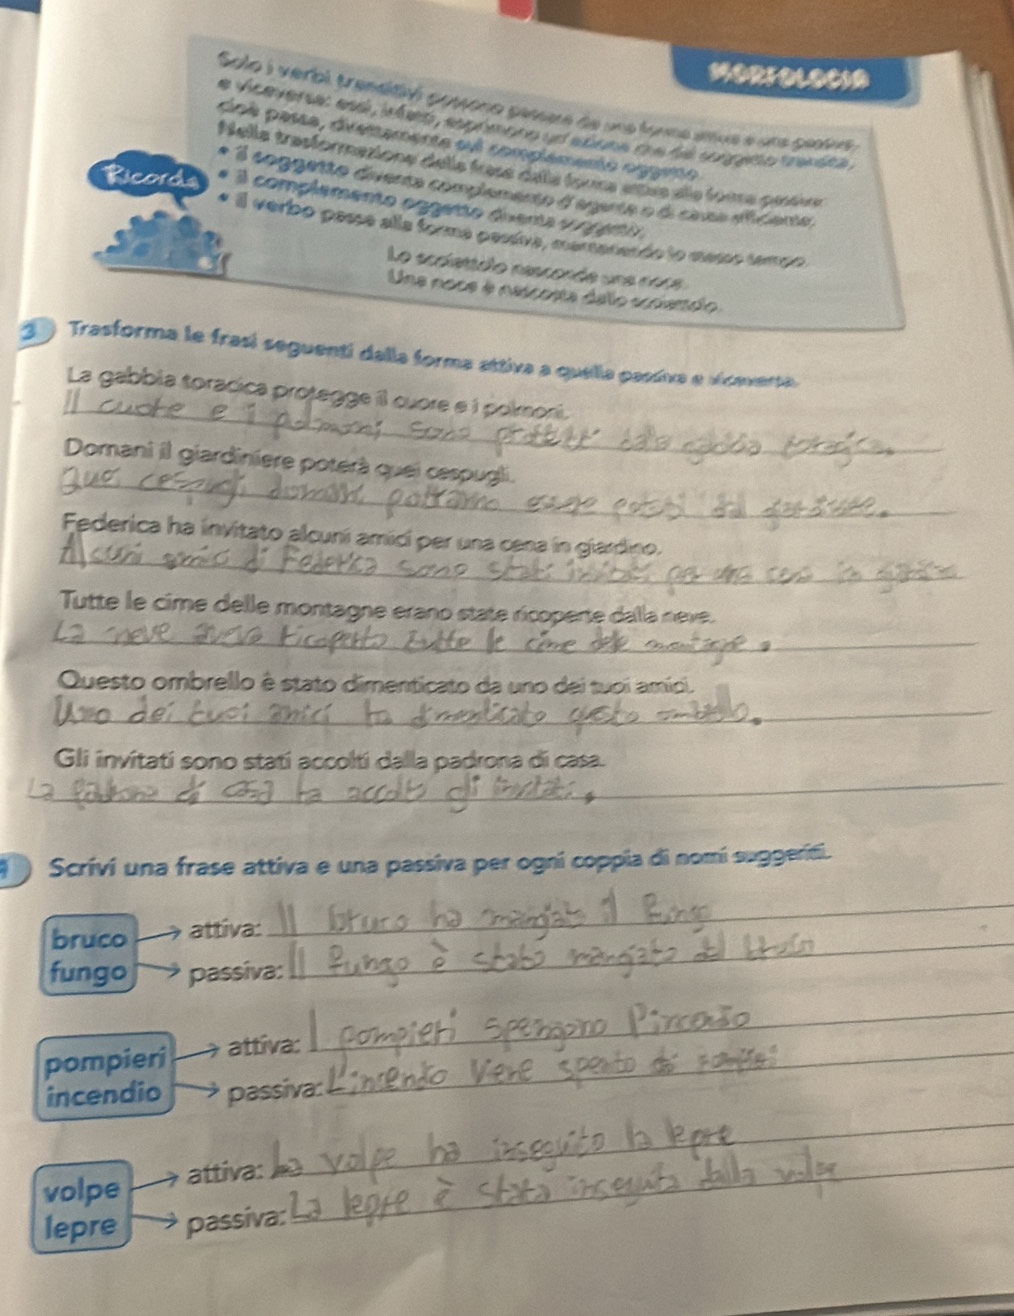 MORFOLOGIA
Solo i verbi transitivi possono passare da una forma attiva a una passiva
e viceversa: essi, infatti, esprimono un'azione che dal soggetto transita,
cioè passa, direttamente sul complemento oggetto.
Nella trasformazione della frase dalla forma attiva alla forma passiva:
• il soggetto diventa complemento d'agente o di causa efficiente;
• il complemento oggetto diventa soggetto;
• il verbo passa alla forma passiva, mantenendo lo stesso tempo.
Ricorda
Lo scoiattolo nasconde una noce.
Una noce è nascosta dallo scoiattolo.
3 Trasforma le frasi seguenti dalla forma attiva a quella passiva e viceversa.
La gabbia toracica protegge il cuore e i polmoni.
Il cuore e i polmoni sono protetti dala gabbia toracica.
Domani il giardiniere poterà quei cespugli.
Quei cespugli domani potranno essere potati dal giardiniere.
Federica ha invitato alcuni amici per una cena in giardino.
Alcuni amici di Federica sono stati invitati per una cena in giardino
Tutte le cime delle montagne erano state ricoperte dalla neve.
La neve aveva ricoperto tutte le cime delle montagne.
Questo ombrello è stato dimenticato da uno dei tuoi amici.
Uno dei tuoi amici ha dimenticato questo ombrello.
Gli invitati sono stati accolti dalla padrona di casa.
La padrona di casa ha accolto gli invitati.
Scrivi una frase attiva e una passiva per ogni coppia di nomi suggeriti.
bruco attiva: Il bruco ha mangiato il fungo
fungo passiva: Il fungo è stato mangiato dal bruco
pompieri attiva: I pompieri spengono l'incendio
incendio passiva: L'incendio viene spento dai pompieri
volpe attiva: La volpe ha inseguito la lepre
lepre passiva: La lepre è stata inseguita dalla volpe